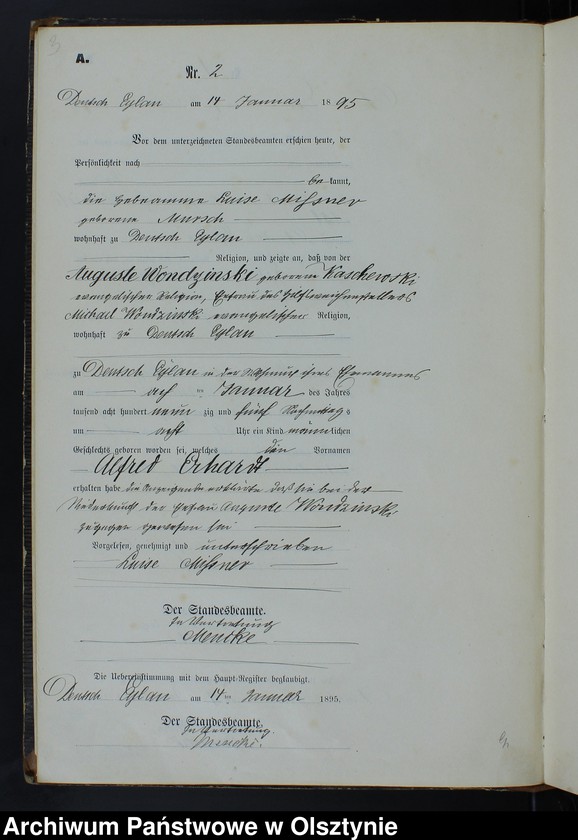 A.
Nr. 2
Deutsch Eylau am 14 Januar 1895
Vor dem unterzeichneten Standesbeamten erschien heute, der
Persönlichkeit nach
bekannt,
die Hebeamme Luise Missner
geborene Mursch
wohnhaft zu Deutsch Eylau
Religion, und zeigte an, daß von der
Auguste Wondzinski geborene Kaschewski
evangelischer Religion, Ehefrau des Hilfsweichenstellers
Michael Wondzinski evangelischer Religion,
wohnhaft zu Deutsch Eylau
zu Deutsch Eylau in der Wohnung ihres Ehemannes
am acht ten Januar des Jahres
tausend acht hundert neun zig und fünf Nachmittags
um acht Uhr ein Kind männlichen
Geschlechts geboren worden sei, welches den Vornamen
Alfred Erhardt
erhalten habe die Anzeigende erklärte daß sie bei der
Niederkunft der Ehefrau Auguste Wondzinski
zugegen gewesen sei
Vorgelesen, genehmigt und unterschrieben
Luise Missner
Der Standesbeamte.
In Vertretung
Mencke
Die Uebereinstimmung mit dem Haupt-Register beglaubigt.
Deutsch Eylau am 14 ten Januar 1895.
Der Standesbeamte.
In Vertretung.
Mencke.
Archiwum Państwowe w Olsztynie